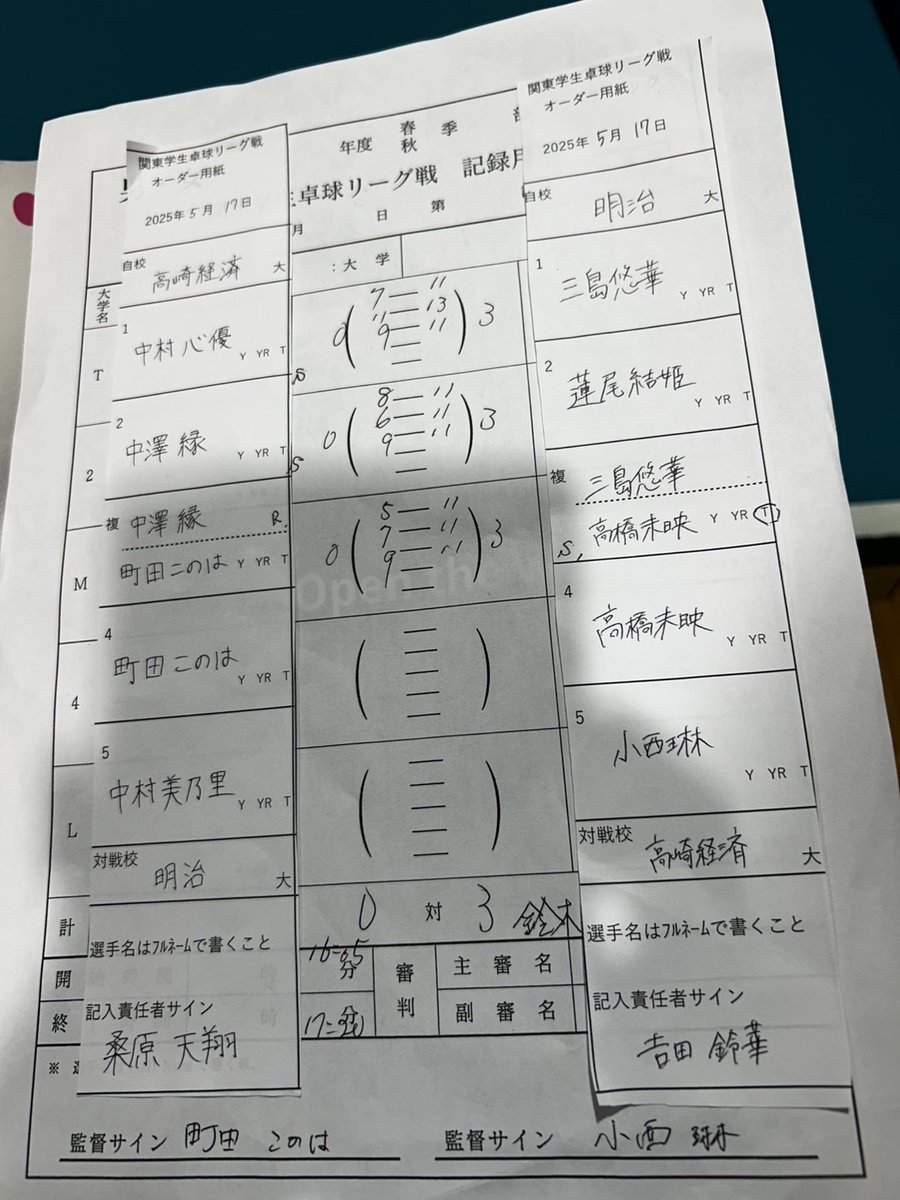 関東学生卓球リーグ戦
オーダー用紙
2025年 5月 17日
自校 高崎経済 大
1
中村 心優 Y YR T
2
中澤 縁 Y YR T
複 中澤 縁 R.
町田 このは Y YR T
4
町田 このは Y YR T
5
中村 美乃里 Y YR T
対戦校
明治 大
選手名はフルネームで書くこと
記入責任者サイン
桑原 天翔
大学名
T
2
M
4
L
計
開
終
年度 春 秋 季
生卓球リーグ戦 記録用
月 日 第
:大 学
7 — 11
0 ( 11 — 13 ) 3
9 — 11
S
8 — 11
0 ( 6 — 11 ) 3
9 — 11
S
5 — 11
0 ( 7 — 11 ) 3
9 — 11
0 対 3 鈴木
分
審判
主審名
副審名
関東学生卓球リーグ戦
オーダー用紙
2025年 5月 17日
自校 明治 大
1
三島悠華 Y YR T
2
蓮尾結姫 Y YR T
複 三島悠華
S, 高橋未映 Y YR T
4
高橋未映 Y YR T
5
小西琳 Y YR T
対戦校
高崎経済 大
選手名はフルネームで書くこと
記入責任者サイン
吉田 鈴華
監督サイン 町田 このは
監督サイン 小西 琳